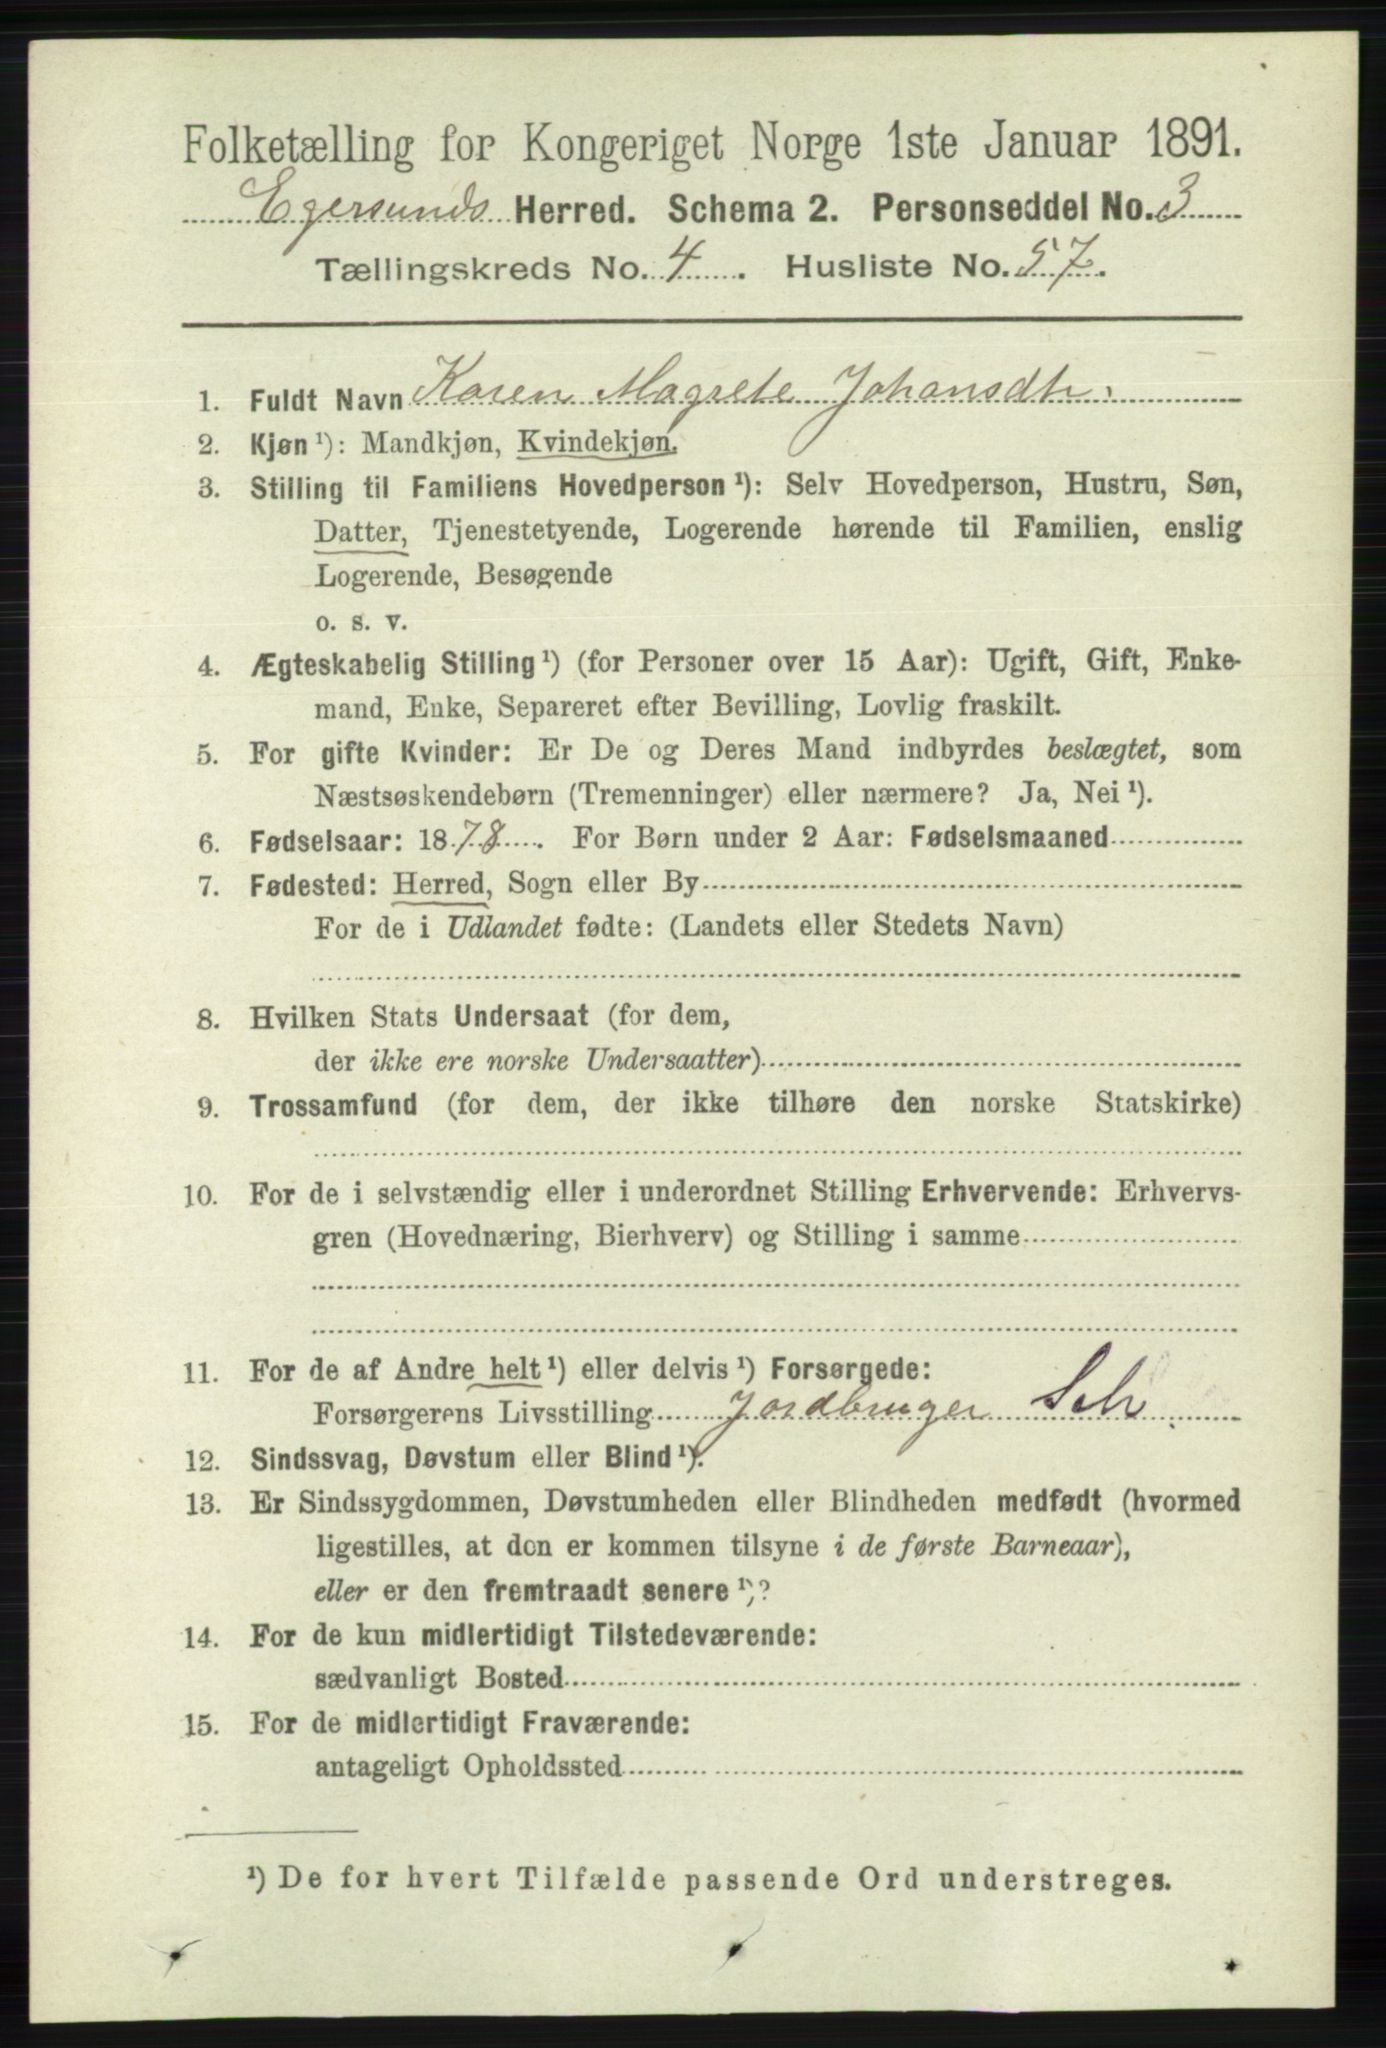 Folketælling for Kongeriget Norge 1ste Januar 1891.
Egersunds Herred. Schema 2. Personseddel No. 3
Tællingskreds No. 4. Husliste No. 57.
1. Fuldt Navn Karen Magrete Johansdtr.
2. Kjøn ¹): Mandkjøn, Kvindekjøn.
3. Stilling til Familiens Hovedperson ¹): Selv Hovedperson, Hustru, Søn,
Datter, Tjenestetyende, Logerende hørende til Familien, enslig
Logerende, Besøgende
o. s. v.
4. Ægteskabelig Stilling ¹) (for Personer over 15 Aar): Ugift, Gift, Enke-
mand, Enke, Separeret efter Bevilling, Lovlig fraskilt.
5. For gifte Kvinder: Er De og Deres Mand indbyrdes beslægtet, som
Næstsøskendebørn (Tremenninger) eller nærmere? Ja, Nei ¹).
6. Fødselsaar: 1878. For Børn under 2 Aar: Fødselsmaaned
7. Fødested: Herred, Sogn eller By
For de i Udlandet fødte: (Landets eller Stedets Navn)
8. Hvilken Stats Undersaat (for dem,
der ikke ere norske Undersaatter)
9. Trossamfund (for dem, der ikke tilhøre den norske Statskirke)
10. For de i selvstændig eller i underordnet Stilling Erhvervende: Erhvervs-
gren (Hovednæring, Bierhverv) og Stilling i samme
11. For de af Andre helt ¹) eller delvis ¹) Forsørgede:
Forsørgerens Livsstilling Jordbruger Sch
12. Sindssvag, Døvstum eller Blind ¹).
13. Er Sindssygdommen, Døvstumheden eller Blindheden medfødt (hvormed
ligestilles, at den er kommen tilsyne i de første Barneaar),
eller er den fremtraadt senere ¹)?
14. For de kun midlertidigt Tilstedeværende:
sædvanligt Bosted
15. For de midlertidigt Fraværende:
antageligt Opholdssted
¹) De for hvert Tilfælde passende Ord understreges.